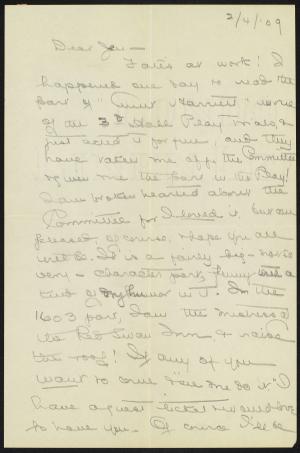 2/4/'09
Dear Jen—
Fate's at work! I
happened one day to read the
part of "Aunt Harriett" in one
of the 3d Hall Play trials, &
just acted it for fun, and they
have taken me off the Committee
& given me the part in the Play!
I am broken hearted about the
Committee for I loved it, but am
pleased, of course, & hope you all
will be. It is a fairly big — not so
very — character part, funny with a
kind of dry humor in it. In the
1603 part, I am the mistress of
the Red Swan Inn & raise
the roof! If any of you
want to come & "see me do it" I
have a guest ticket & would love
to have you. Of course I'll be